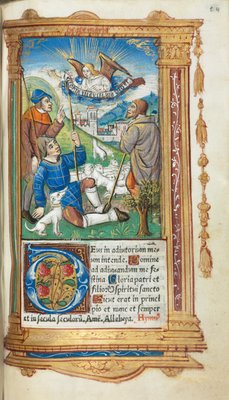 Deus in adiutorium me
um intende. Domine
ad adiuuandum me fe
stina Gloria patri et
filio et spiritui sancto
Sicut erat in princi
pio et nunc et semper
et in secula seculorū. Amē. Alleluya.